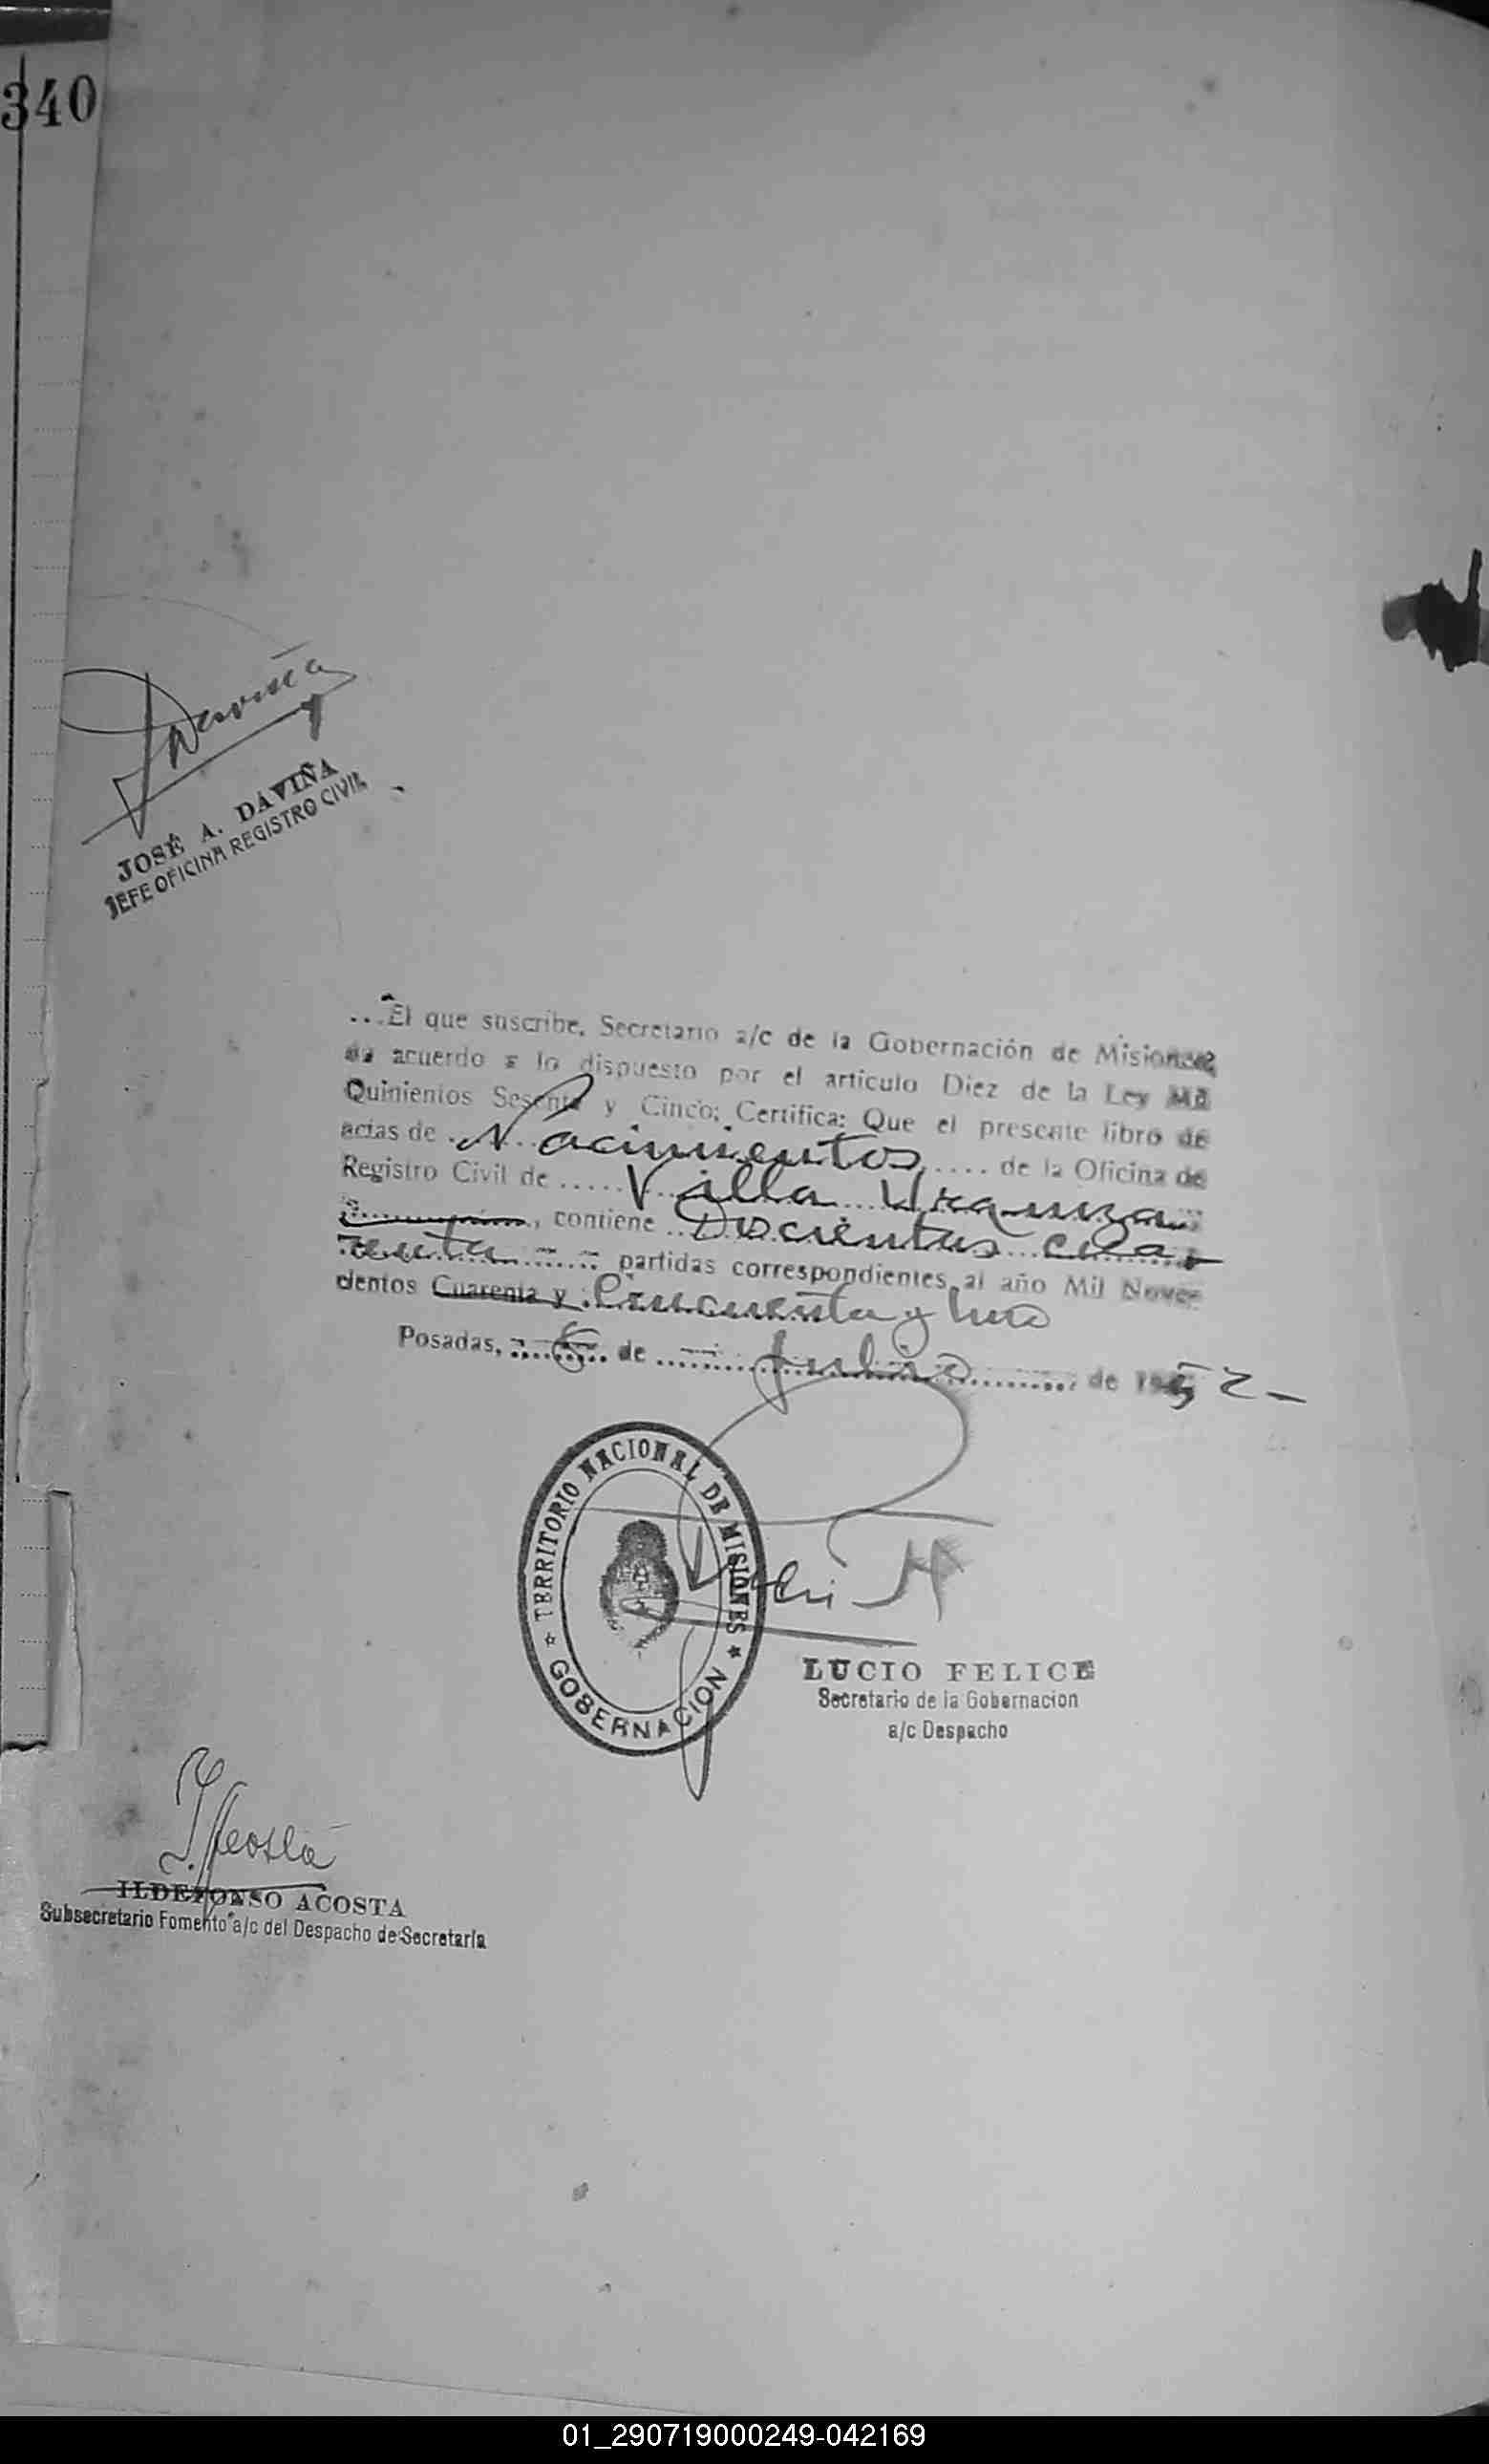 340
Daviña
JOSÉ A. DAVIÑA
JEFE OFICINA REGISTRO CIVIL
...El que suscribe, Secretario a/c de la Gobernación de Misiones,
de acuerdo a lo dispuesto por el artículo Diez de la Ley Mil
Quinientos Sesenta y Cinco; Certifica: Que el presente libro de
actas de Nacimientos, .... de la Oficina de
Registro Civil de ..... Villa Urquiza
, contiene Doscientas cua-
renta partidas correspondientes al año Mil Nove-
cientos Cuarenta y Cincuenta y Uno
Posadas, 6 de Julio de 1952-
TERRITORIO NACIONAL DE MISIONES
GOBERNACION
LUCIO FELICE
Secretario de la Gobernacion
a/c Despacho
I Acosta
ILDEFONSO ACOSTA
Subsecretario Fomento a/c del Despacho de Secretaría
01_290719000249-042169